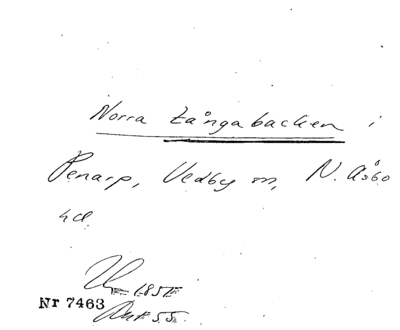 Norra Långabacken i
Penarp, Vedby sn, N. Åsbo
hd.
Nr 7463